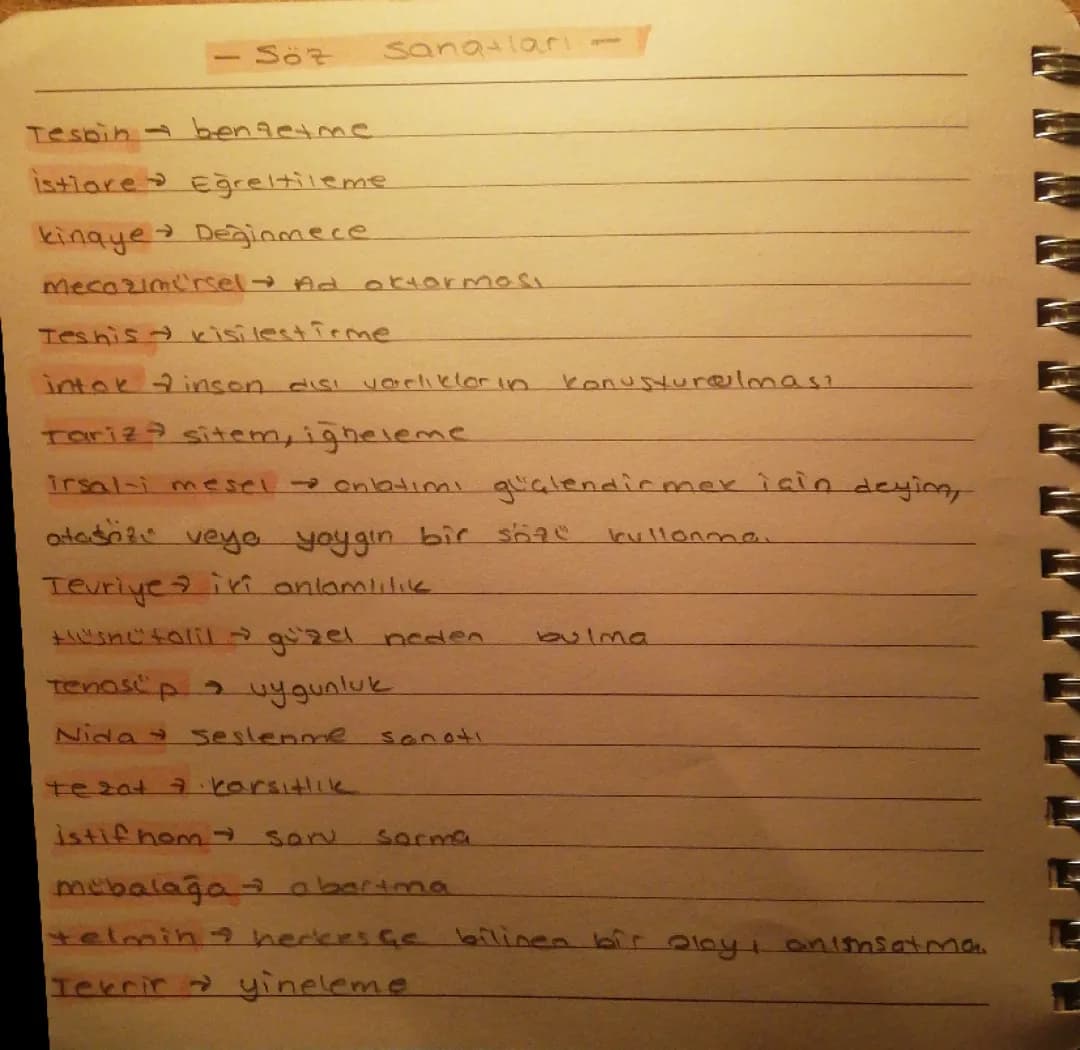 - Söz sanatları -
Tesbih → benzetme
istiare → Eğreltileme
kinaye → Değinmece
mecazımürsel → Ad aktarması
Teshis → kisilestirme
intak → insan dısı varlıkların konusturulması
Tariz → sitem, iğneleme
irsal-i mesel → anlatımı güçlendirmek için deyim,
atasözü veya yaygın bir sözü kullanma.
Tevriye → iki anlamlılık
Hüsnütalil → güzel neden bulma
Tenasüp → uygunluk
Nida → seslenme sanatı
tezat → karsıtlık
istifham → soru sorma
mübalağa → abartma
telmih → herkesçe bilinen bir olayı anımsatma.
Tekrir → yineleme